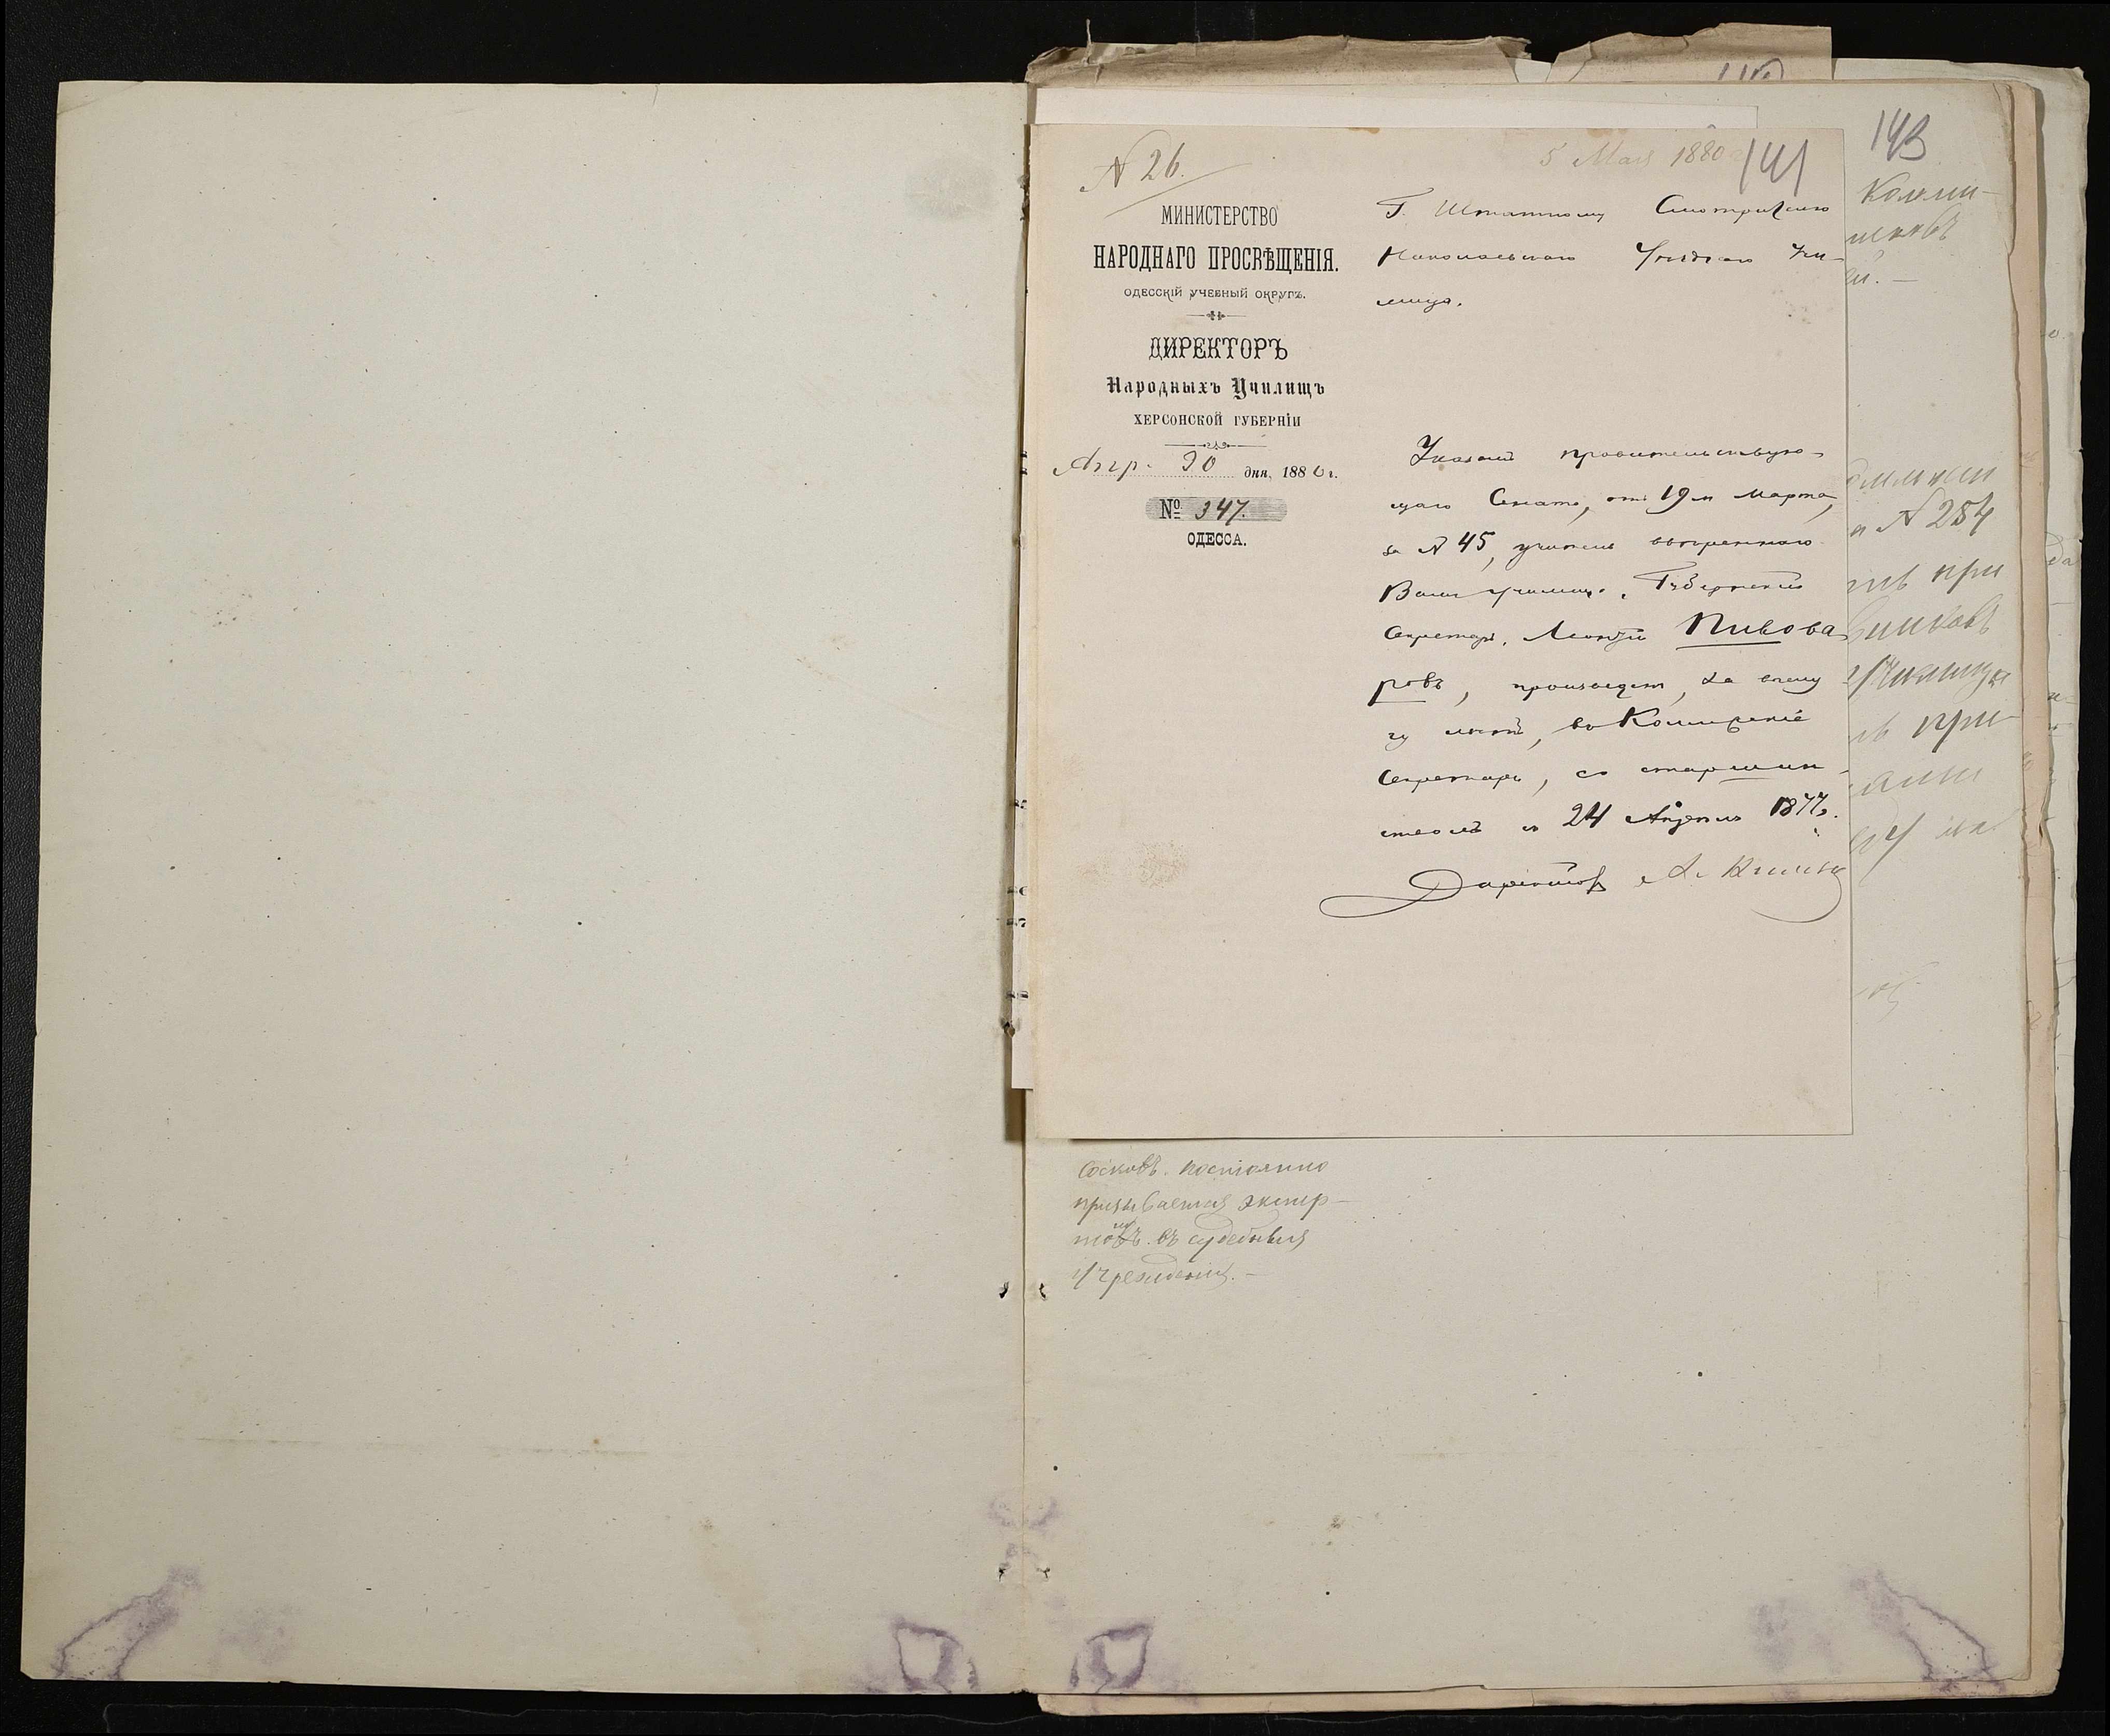 143
141
5 Мая 1880
N 26.
МИНИСТЕРСТВО
НАРОДНАГО ПРОСВѢЩЕНІЯ.
ОДЕССКІЙ УЧЕБНЫЙ ОКРУГЪ.
ДИРЕКТОРЪ
Народныхъ Училищъ
ХЕРСОНСКОЙ ГУБЕРНІИ
Апр. 30 дня, 1880 г.
№ 347.
ОДЕССА.
Г. Штатному Смотрителю
Николаевскаго Уѣзднаго Учи-
лища.
Указомъ правительствую-
щаго Сената, отъ 19 м марта,
за N 45, учитель ввѣреннаго
Вамъ училища, Губернскій
Секретарь, Леонтій Пивова
ровъ, произведенъ, за выслу
гу лѣтъ, въ Коллежскіе
Секретари, со старшин-
ствомъ съ 24 Апрѣля 1877.
Директоръ А.
Колли-
N 254
при
при
постоянно
призывается экспер-
томъ въ судебныя
учрежденія. -